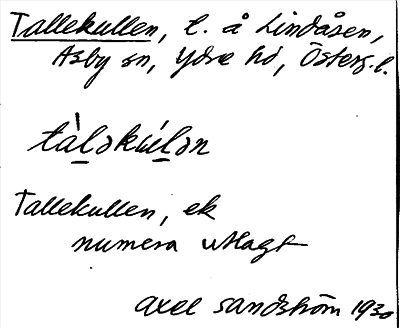 Tallekullen, t. å Lindåsen,
Asby sn, Ydre hd, Österg. l.
tàl̲əkúl̲ən
Tallekullen, ek
numera utlagt
Axel Sandström 1930